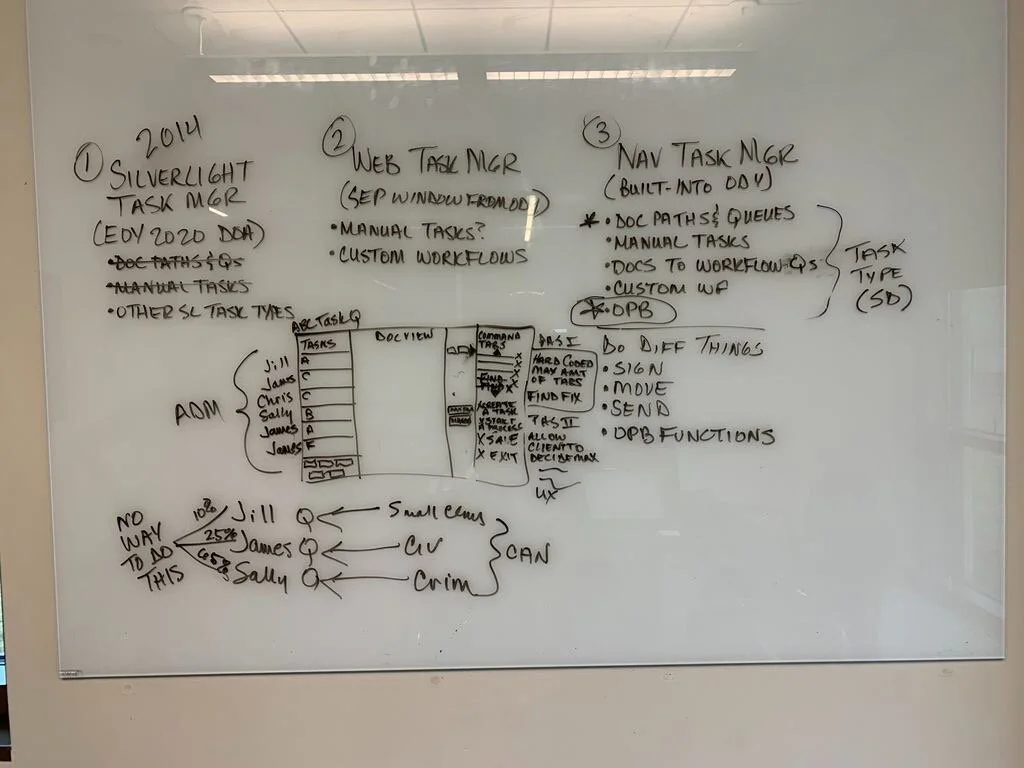 ① 2014
SILVERLIGHT
TASK MGR
(EOY 2020 DOA)
•DOC PATHS & Qs
•MANUAL TASKS
•OTHER SL TASK TYPES
② WEB TASK MGR
(SEP WINDOW FROM ODY)
•MANUAL TASKS?
•CUSTOM WORKFLOWS
③ NAV TASK MGR
(BUILT-INTO ODY)
* •DOC PATHS & QUEUES
•MANUAL TASKS
•DOCS TO WORKFLOW Qs
•CUSTOM WF
*•OPB
TASK
TYPE
(SD)
ABC TASK Q
TASKS
A
C
C
B
A
F
ADM
Jill
James
Chris
Sally
James
James
DOC VIEW
COMMAND
TABS
X
X
X
X
FIND
FIND X
X CREATE
A TASK
X START
A PROCESS
X SAVE
X EXIT
PAS I
HARD CODED
MAX AMT
OF TABS
FIND FIX
PAS II
ALLOW
CLIENT TO
DECIDE MAX
UX
DO DIFF THINGS
•SIGN
•MOVE
•SEND
•OPB FUNCTIONS
NO
WAY
TO DO
THIS
10% Jill Q Small Clms
25% James Q CIV
65% Sally Q Crim
CAN